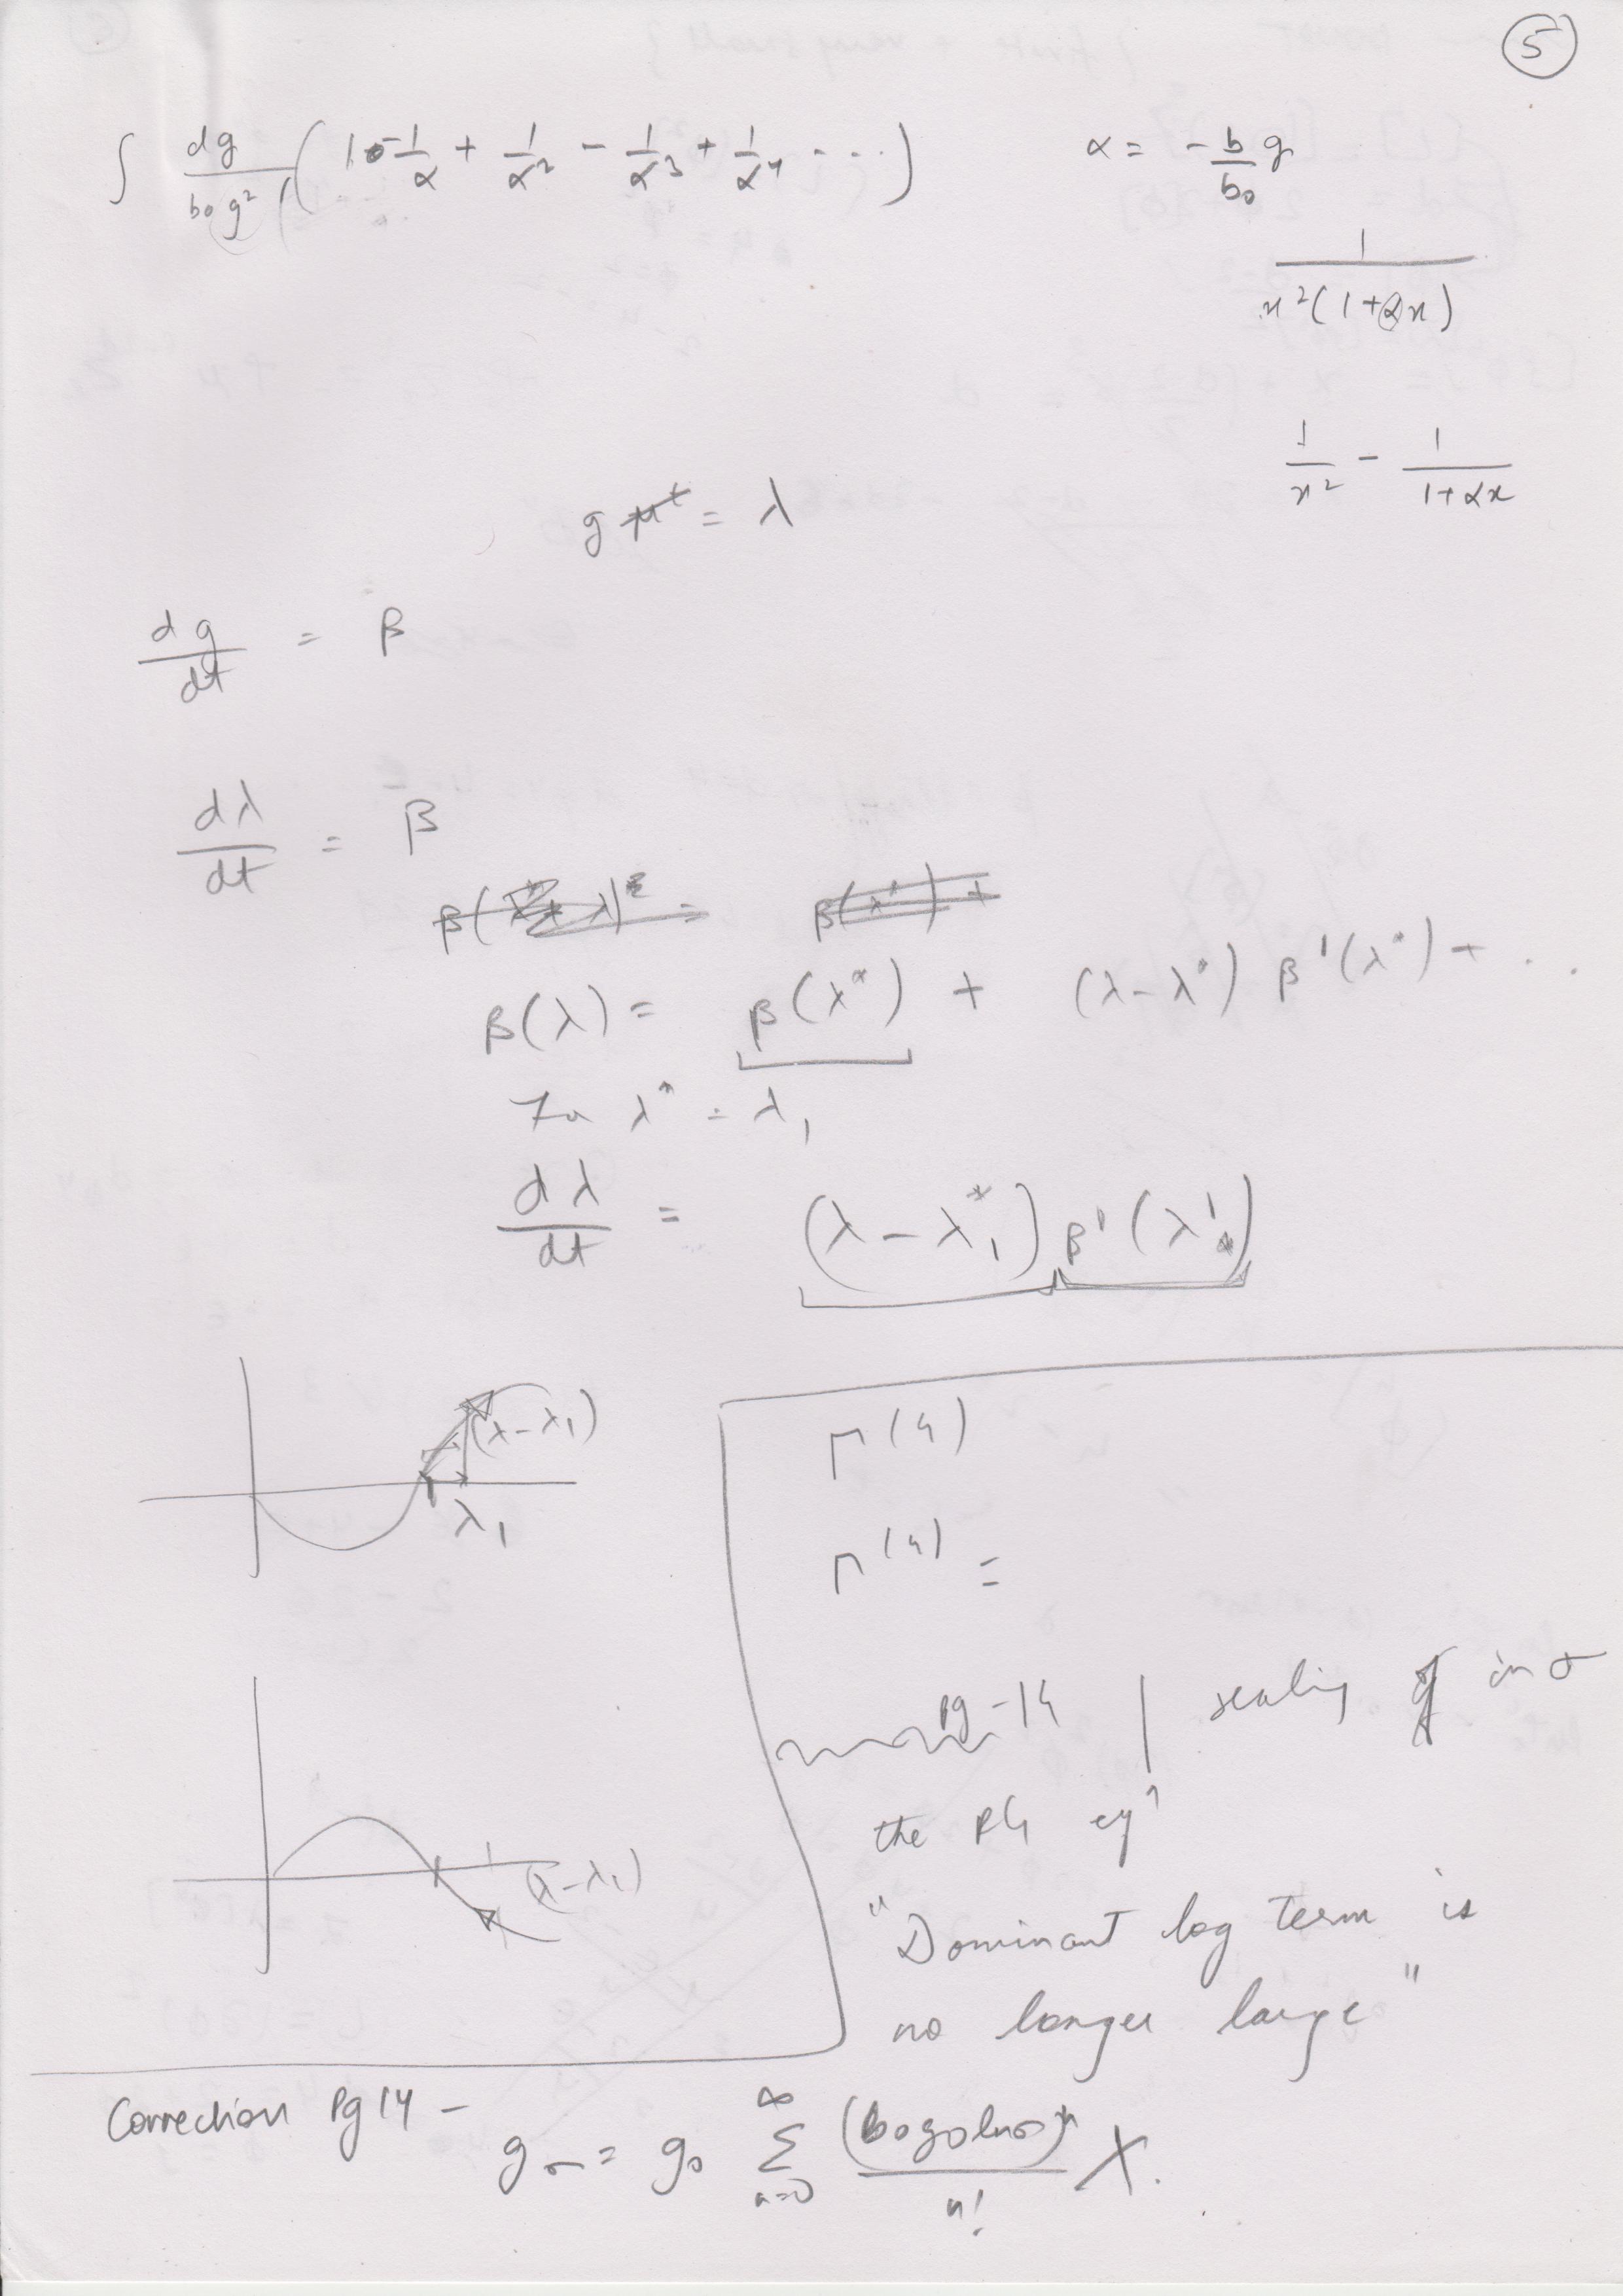 5
∫ dg/(b₀g²) (1 - 1/α + 1/α² - 1/α³ + 1/α⁴ - ...)
α = - b/b₀ g
1/(x²(1+αx))
1/x² - 1/(1+αx)
g = λ
dg/dt = β
dλ/dt = β
β(λ) = β(λ*) + (λ-λ*) β'(λ*) + ...
λ* = λ₁
dλ/dt = (λ - λ₁*) β'(λ₁)
(λ-λ₁)
λ₁
Γ⁽⁴⁾
Γ⁽⁴⁾ =
pg-14 | scaling of in σ
the RG eqⁿ
(λ-λ₁)
"Dominant log term is
no longer large"
Correction Pg 14 -
gσ = g₀ ∑ₙ₌₀^∞ (b₀g₀lnσ)ⁿ/n! X.